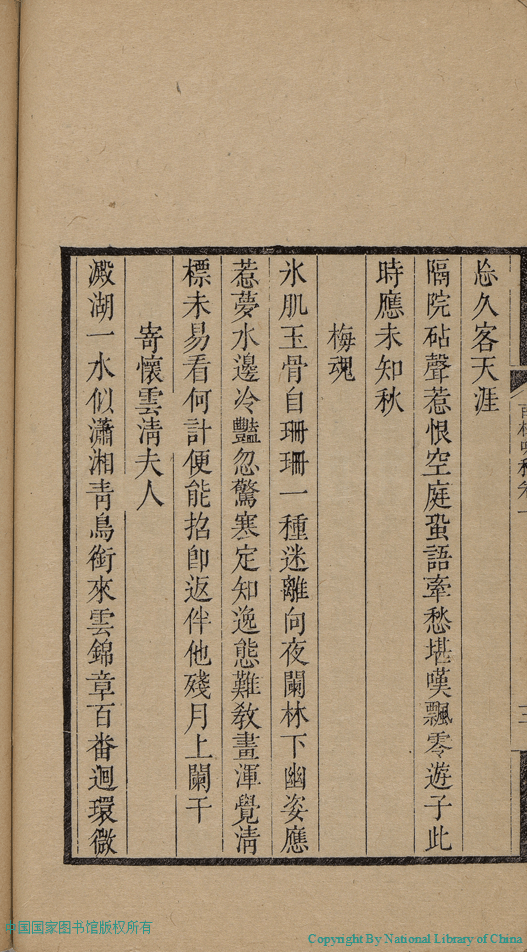 怨久客天涯
隔院砧聲惹恨空庭蛩語牽愁堪嘆飄零遊子此
時應未知秋
梅魂
氷肌玉骨自珊珊一種迷離向夜闌林下幽姿應
惹夢水邊冷豔忽驚寒定知逸態難教畫渾覺清
標未易看何計便能招卽返伴他殘月上闌干
寄懷雲淸夫人
澱湖一水似瀟湘靑鳥銜來雲錦章百番迴環微
中国国家图书馆版权所有
Copyright By National Library of China